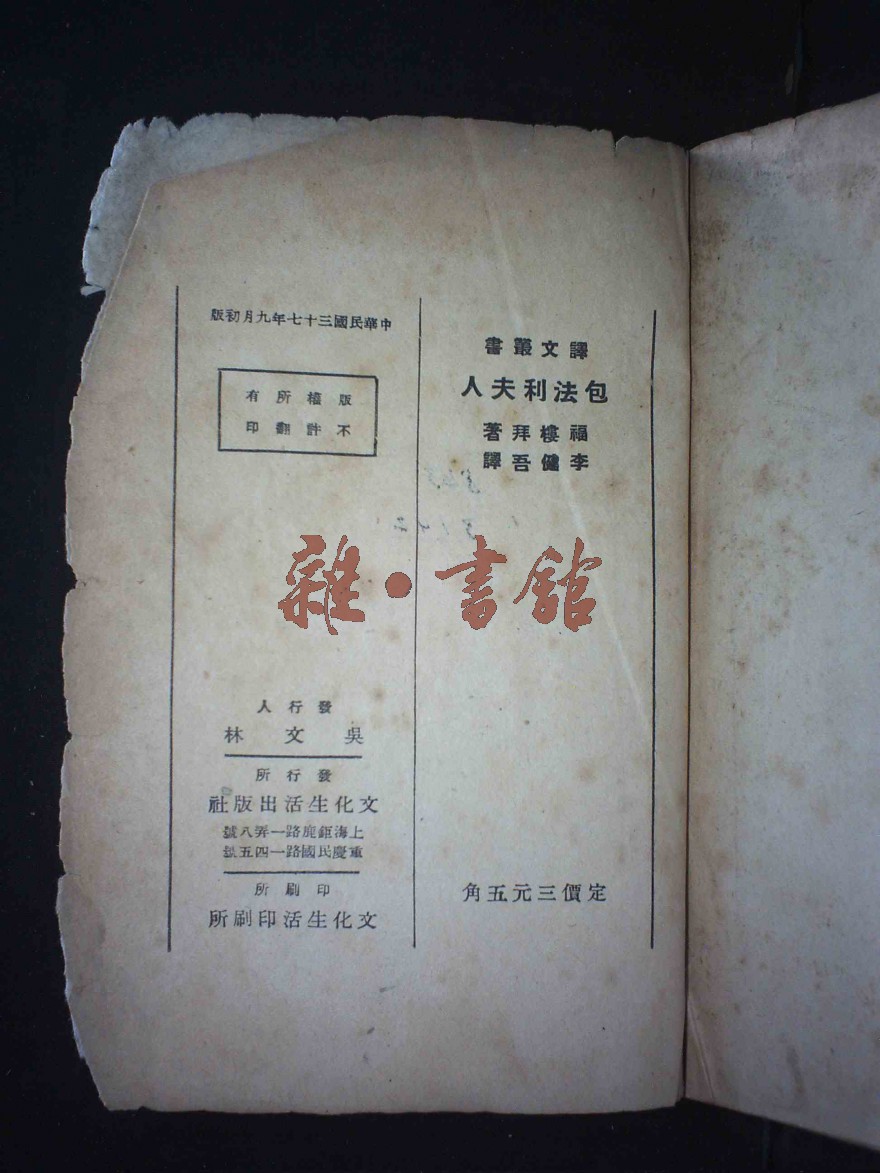 譯文叢書
包法利夫人
福樓拜著
李健吾譯
定價三元五角
中華民國三十七年九月初版
版權所有
不許翻印
發行人
吳文林
發行所
文化生活出版社
上海鉅鹿路一弄八號
重慶民國路一四五號
印刷所
文化生活印刷所
雜·書館